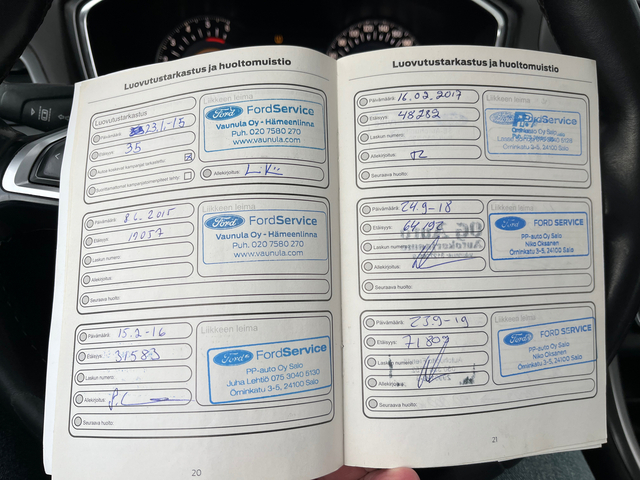 Luovutustarkastus ja huoltomuistio
Luovutustarkastus
Päivämäärä: 23.1-15
Etäisyys: 35
Allekirjoitus:
Liikkeen leima
Ford FordService
Vaunula Oy - Hämeenlinna
Puh. 020 7580 270
www.vaunula.com
Päivämäärä: 2015
Etäisyys: 17057
Laskun numero:
Allekirjoitus:
Seuraava huolto:
Liikkeen leima
Ford FordService
Vaunula Oy - Hämeenlinna
Puh. 020 7580 270
www.vaunula.com
Päivämäärä: 15.2-16
Etäisyys: 31583
Laskun numero:
Allekirjoitus:
Seuraava huolto:
Liikkeen leima
Ford FordService
PP-auto Oy Salo
Juha Lehtiö 075 3040 5130
Örninkatu 3-5, 24100 Salo
20
Luovutustarkastus ja huoltomuistio
Päivämäärä: 16.02.2017
Etäisyys: 48282
Laskun numero:
Allekirjoitus:
Seuraava huolto:
Örninkatu 3-5, 24100 Salo
Päivämäärä: 24.9-18
Etäisyys: 64192
Laskun numero:
Allekirjoitus:
Seuraava huolto:
Ford FORD SERVICE
PP-auto Oy Salo
Niko Oksanen
Örninkatu 3-5, 24100 Salo
Päivämäärä: 23.9-19
Etäisyys: 71809
Laskun numero:
Allekirjoitus:
Seuraava huolto:
Liikkeen leima
Ford FORD SERVICE
PP-auto Oy Salo
Niko Oksanen
Örninkatu 3-5, 24100 Salo
21